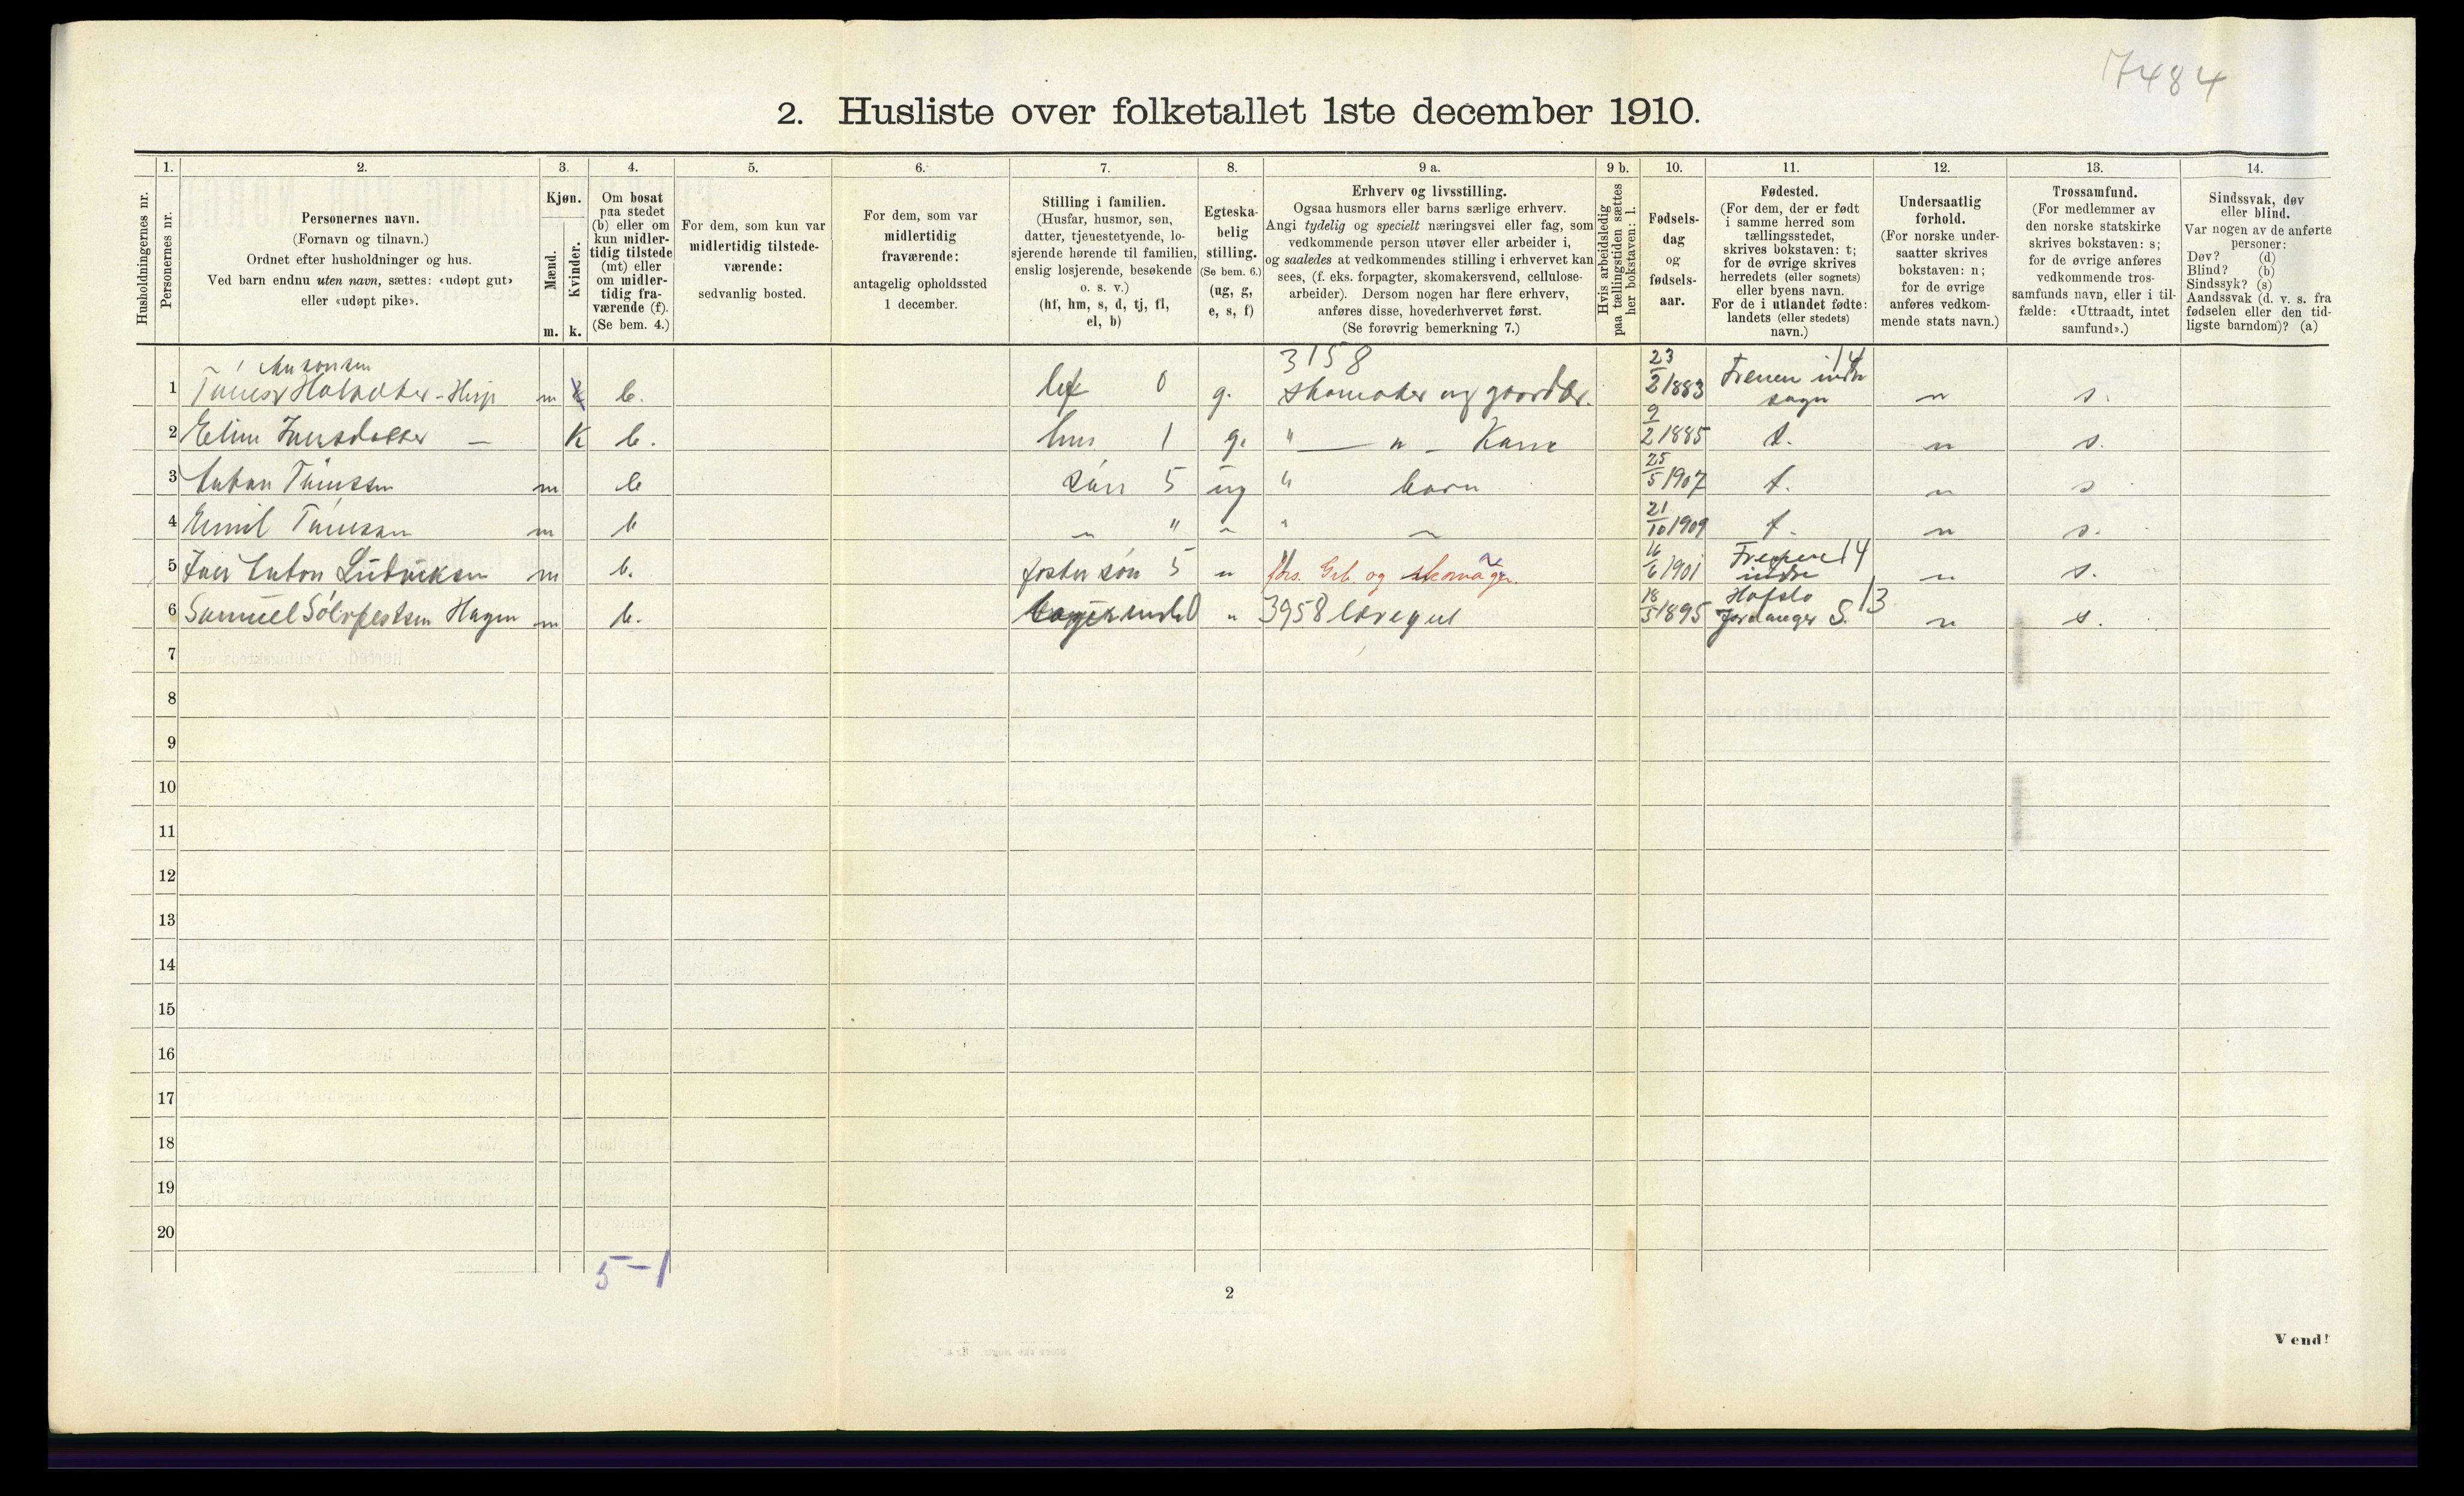 7484
2. Husliste over folketallet 1ste december 1910.
Husholdningernes nr.
1.
Personernes nr.
2.
Personernes navn.
(Fornavn og tilnavn.)
Ordnet efter husholdninger og hus.
Ved barn endnu uten navn, sættes: «udøpt gut»
eller «udøpt pike».
3.
Kjøn.
Mænd.
Kvinder.
m. k.
4.
Om bosat
paa stedet
(b) eller om
kun midler-
tidig tilstede
(mt) eller
om midler-
tidig fra-
værende (f).
(Se bem. 4.)
5.
For dem, som kun var
midlertidig tilstede-
værende:
sedvanlig bosted.
6.
For dem, som var
midlertidig
fraværende:
antagelig opholdssted
1 december.
7.
Stilling i familien.
(Husfar, husmor, søn,
datter, tjenestetyende, lo-
sjerende hørende til familien,
enslig losjerende, besøkende
o. s. v.)
(hf, hm, s, d, tj, fl,
el, b)
8.
Egteska-
belig
stilling.
(Se bem. 6.)
(ug, g,
e, s, f)
9 a.
Erhverv og livsstilling.
Ogsaa husmors eller barns særlige erhverv.
Angi tydelig og specielt næringsvei eller fag, som
vedkommende person utøver eller arbeider i,
og saaledes at vedkommendes stilling i erhvervet kan
sees, (f. eks. forpagter, skomakersvend, cellulose-
arbeider). Dersom nogen har flere erhverv,
anføres disse, hovederhvervet først.
(Se forøvrig bemerkning 7.)
9 b.
Hvis arbeidsledig
paa tællingstiden sættes
her bokstaven: l.
10.
Fødsels-
dag
og
fødsels-
aar.
11.
Fødested.
(For dem, der er født
i samme herred som
tællingsstedet,
skrives bokstaven: t;
for de øvrige skrives
herredets (eller sognets)
eller byens navn.
For de i utlandet fødte:
landets (eller stedets)
navn.)
12.
Undersaatlig
forhold.
(For norske under-
saatter skrives
bokstaven: n;
for de øvrige
anføres vedkom-
mende stats navn.)
13.
Trossamfund.
(For medlemmer av
den norske statskirke
skrives bokstaven: s;
for de øvrige anføres
vedkommende tros-
samfunds navn, eller i til-
fælde: «Uttraadt, intet
samfund».)
14.
Sindssvak, døv
eller blind.
Var nogen av de anførte
personer:
Døv? (d)
Blind? (b)
Sindssyk? (s)
Aandssvak (d. v. s. fra
fødselen eller den tid-
ligste barndom)? (a)
3158 14
1 m b. 0 g. skomaker og 23/2 1883 indre sogn n s.
2 K b. hus 1 g. " — " — Kone 9/2 1885 t. n s.
3 m b søn 5 ug " barn 25/5 1907 t. n s
4 Emil m b " " " " 21/10 1909 t. n s.
5 Anton Ludviksen m b. foster søn 5 " fors. Grb. og 16/6 1901 indre 14 n s.
6 Samuel Hagen m b. 0 " 3958 læregut 18/5 1895 Hafslo S. 13 n s.
7
8
9
10
11
12
13
14
15
16
17
18
19
20
5–1
2
Vend!